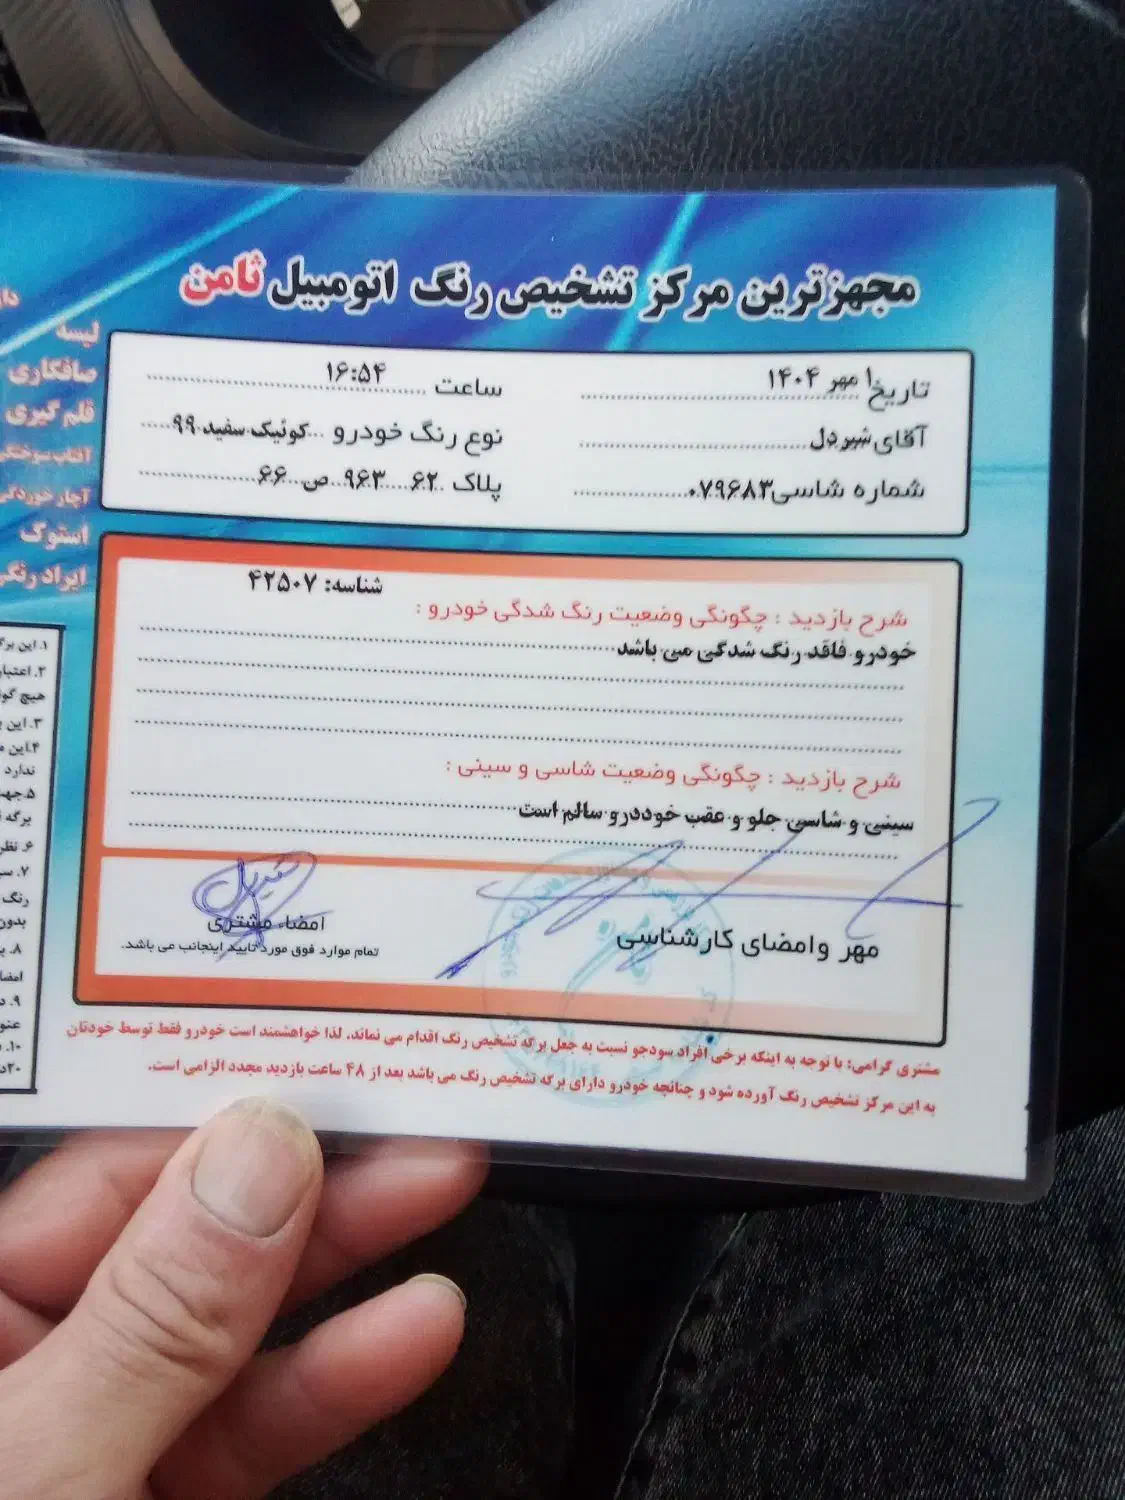 مجهزترین مرکز تشخیص رنگ اتومبیل ثامن
تاریخ ۱ مهر ۱۴۰۴
ساعت ۱۶:۵۴
آقای شیردل
نوع رنگ خودرو کوئیک سفید ۹۹
شماره شاسی ۰۷۹۶۸۳
پلاک ۶۲ ۹۶۳ ص ۶۶
شناسه: ۴۲۵۰۷
شرح بازدید : چگونگی وضعیت رنگ شدگی خودرو :
خودرو فاقد رنگ شدگی می باشد
شرح بازدید : چگونگی وضعیت شاسی و سینی :
سینی و شاسی جلو و عقب خوددرو سالم است
مهر وامضای کارشناسی
امضاء مشتری
تمام موارد فوق مورد تایید اینجانب می باشد.
مشتری گرامی: با توجه به اینکه برخی افراد سودجو نسبت به جعل برگه تشخیص رنگ اقدام می نماند، لذا خواهشمند است خودرو فقط توسط خودتان
به این مرکز تشخیص رنگ آورده شود و چنانچه خودرو دارای برگه تشخیص رنگ می باشد بعد از ۴۸ ساعت بازدید مجدد الزامی است.
لیسه
صافکاری
قلم گیری
آفتاب سوختگی
آچار خوردگی
استوک
ایراد رنگی
۱. این
۳. این
۴. این
ندارد
برگه
۶. نظر
رنگ
بدون